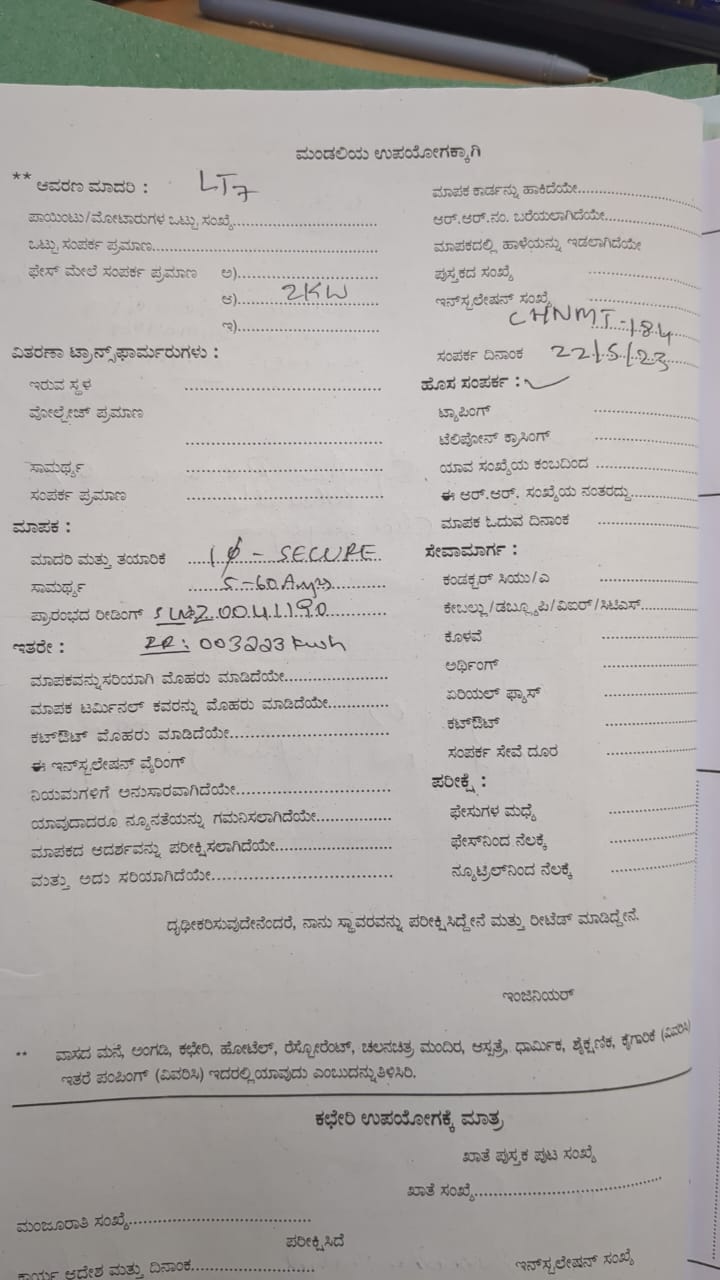 ಮಂಡಲಿಯ ಉಪಯೋಗಕ್ಕಾಗಿ
** ಆವರಣ ಮಾದರಿ : LT7
ಪಾಯಿಂಟು/ಮೋಟಾರುಗಳ ಒಟ್ಟು ಸಂಖ್ಯೆ
ಒಟ್ಟು ಸಂಪರ್ಕ ಪ್ರಮಾಣ
ಫೇಸ್ ಮೇಲೆ ಸಂಪರ್ಕ ಪ್ರಮಾಣ ಅ)
ಆ) 2KW
ಇ)
ವಿತರಣಾ ಟ್ರಾನ್ಸ್‌ಫಾರ್ಮರುಗಳು :
ಇರುವ ಸ್ಥಳ
ವೋಲ್ಟೇಜ್ ಪ್ರಮಾಣ
ಸಾಮರ್ಥ್ಯ
ಸಂಪರ್ಕ ಪ್ರಮಾಣ
ಮಾಪಕ :
ಮಾದರಿ ಮತ್ತು ತಯಾರಿಕೆ 1ϕ - SECURE
ಸಾಮರ್ಥ್ಯ 5-60 Amps
ಪ್ರಾರಂಭದ ರೀಡಿಂಗ್
ಇತರೇ : 003223 kwh
ಮಾಪಕವನ್ನು ಸರಿಯಾಗಿ ಮೊಹರು ಮಾಡಿದೆಯೇ
ಮಾಪಕ ಟರ್ಮಿನಲ್ ಕವರನ್ನು ಮೊಹರು ಮಾಡಿದೆಯೇ
ಕಟ್‌ಔಟ್ ಮೊಹರು ಮಾಡಿದೆಯೇ
ಈ ಇನ್‌ಸ್ಟಲೇಷನ್ ವೈರಿಂಗ್
ನಿಯಮಗಳಿಗೆ ಅನುಸಾರವಾಗಿದೆಯೇ
ಯಾವುದಾದರೂ ನ್ಯೂನತೆಯನ್ನು ಗಮನಿಸಲಾಗಿದೆಯೇ
ಮಾಪಕದ ಆದರ್ಶವನ್ನು ಪರೀಕ್ಷಿಸಲಾಗಿದೆಯೇ
ಮತ್ತು ಅದು ಸರಿಯಾಗಿದೆಯೇ
ಮಾಪಕ ಕಾರ್ಡನ್ನು ಹಾಕಿದೆಯೇ
ಆರ್.ಆರ್.ನಂ. ಬರೆಯಲಾಗಿದೆಯೇ
ಮಾಪಕದಲ್ಲಿ ಹಾಳೆಯನ್ನು ಇಡಲಾಗಿದೆಯೇ
ಪುಸ್ತಕದ ಸಂಖ್ಯೆ
ಇನ್‌ಸ್ಟಲೇಷನ್ ಸಂಖ್ಯೆ
CHNMT-184
ಸಂಪರ್ಕ ದಿನಾಂಕ 22/5/23
ಹೊಸ ಸಂಪರ್ಕ : ✓
ಟ್ಯಾಪಿಂಗ್
ಟೆಲಿಫೋನ್ ಕ್ರಾಸಿಂಗ್
ಯಾವ ಸಂಖ್ಯೆಯ ಕಂಬದಿಂದ
ಈ ಆರ್.ಆರ್. ಸಂಖ್ಯೆಯ ನಂತರದ್ದು
ಮಾಪಕ ಓದುವ ದಿನಾಂಕ
ಸೇವಾಮಾರ್ಗ :
ಕಂಡಕ್ಟರ್ ಸಿಯು/ಎ
ಕೇಬಲ್ಲು/ಡಬ್ಲ್ಯೂಪಿ/ವಿಐಆರ್/ಸಿಟಿಎಸ್
ಕೊಳವೆ
ಅರ್ಥಿಂಗ್
ಏರಿಯಲ್ ಫ್ಯೂಸ್
ಕಟ್‌ಔಟ್
ಸಂಪರ್ಕ ಸೇವೆ ದೂರ
ಪರೀಕ್ಷೆ :
ಫೇಸುಗಳ ಮಧ್ಯೆ
ಫೇಸ್‌ನಿಂದ ನೆಲಕ್ಕೆ
ನ್ಯೂಟ್ರಲ್‌ನಿಂದ ನೆಲಕ್ಕೆ
ದೃಢೀಕರಿಸುವುದೇನೆಂದರೆ, ನಾನು ಸ್ಥಾವರವನ್ನು ಪರೀಕ್ಷಿಸಿದ್ದೇನೆ ಮತ್ತು ರೀಟೆಡ್ ಮಾಡಿದ್ದೇನೆ.
ಇಂಜಿನಿಯರ್
** ವಾಸದ ಮನೆ, ಅಂಗಡಿ, ಕಛೇರಿ, ಹೋಟೆಲ್, ರೆಸ್ಟೋರೆಂಟ್, ಚಲನಚಿತ್ರ ಮಂದಿರ, ಆಸ್ಪತ್ರೆ, ಧಾರ್ಮಿಕ, ಶೈಕ್ಷಣಿಕ, ಕೈಗಾರಿಕೆ (ವಿವರಿಸಿ)
ಇತರೆ ಪಂಪಿಂಗ್ (ವಿವರಿಸಿ) ಇದರಲ್ಲಿ ಯಾವುದು ಎಂಬುದನ್ನು ತಿಳಿಸಿರಿ.
ಕಛೇರಿ ಉಪಯೋಗಕ್ಕೆ ಮಾತ್ರ
ಖಾತೆ ಪುಸ್ತಕ ಪುಟ ಸಂಖ್ಯೆ
ಖಾತೆ ಸಂಖ್ಯೆ
ಮಂಜೂರಾತಿ ಸಂಖ್ಯೆ
ಪರೀಕ್ಷಿಸಿದೆ
ಕಾರ್ಯ ಆದೇಶ ಮತ್ತು ದಿನಾಂಕ
ಇನ್‌ಸ್ಟಲೇಷನ್ ಸಂಖ್ಯೆ